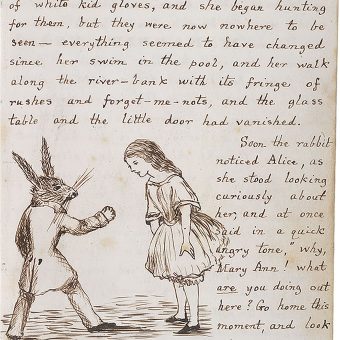 of white kid gloves, and she began hunting
for them, but they were now nowhere to be
seen — everything seemed to have changed
since her swim in the pool, and her walk
along the river-bank with its fringe of
rushes and forget-me-nots, and the glass
table and the little door had vanished.
Soon the rabbit
noticed Alice, as
she stood looking
curiously about
her, and at once
said in a quick
angry tone, "why,
Mary Ann! what
are you doing out
here? Go home this
moment, and look